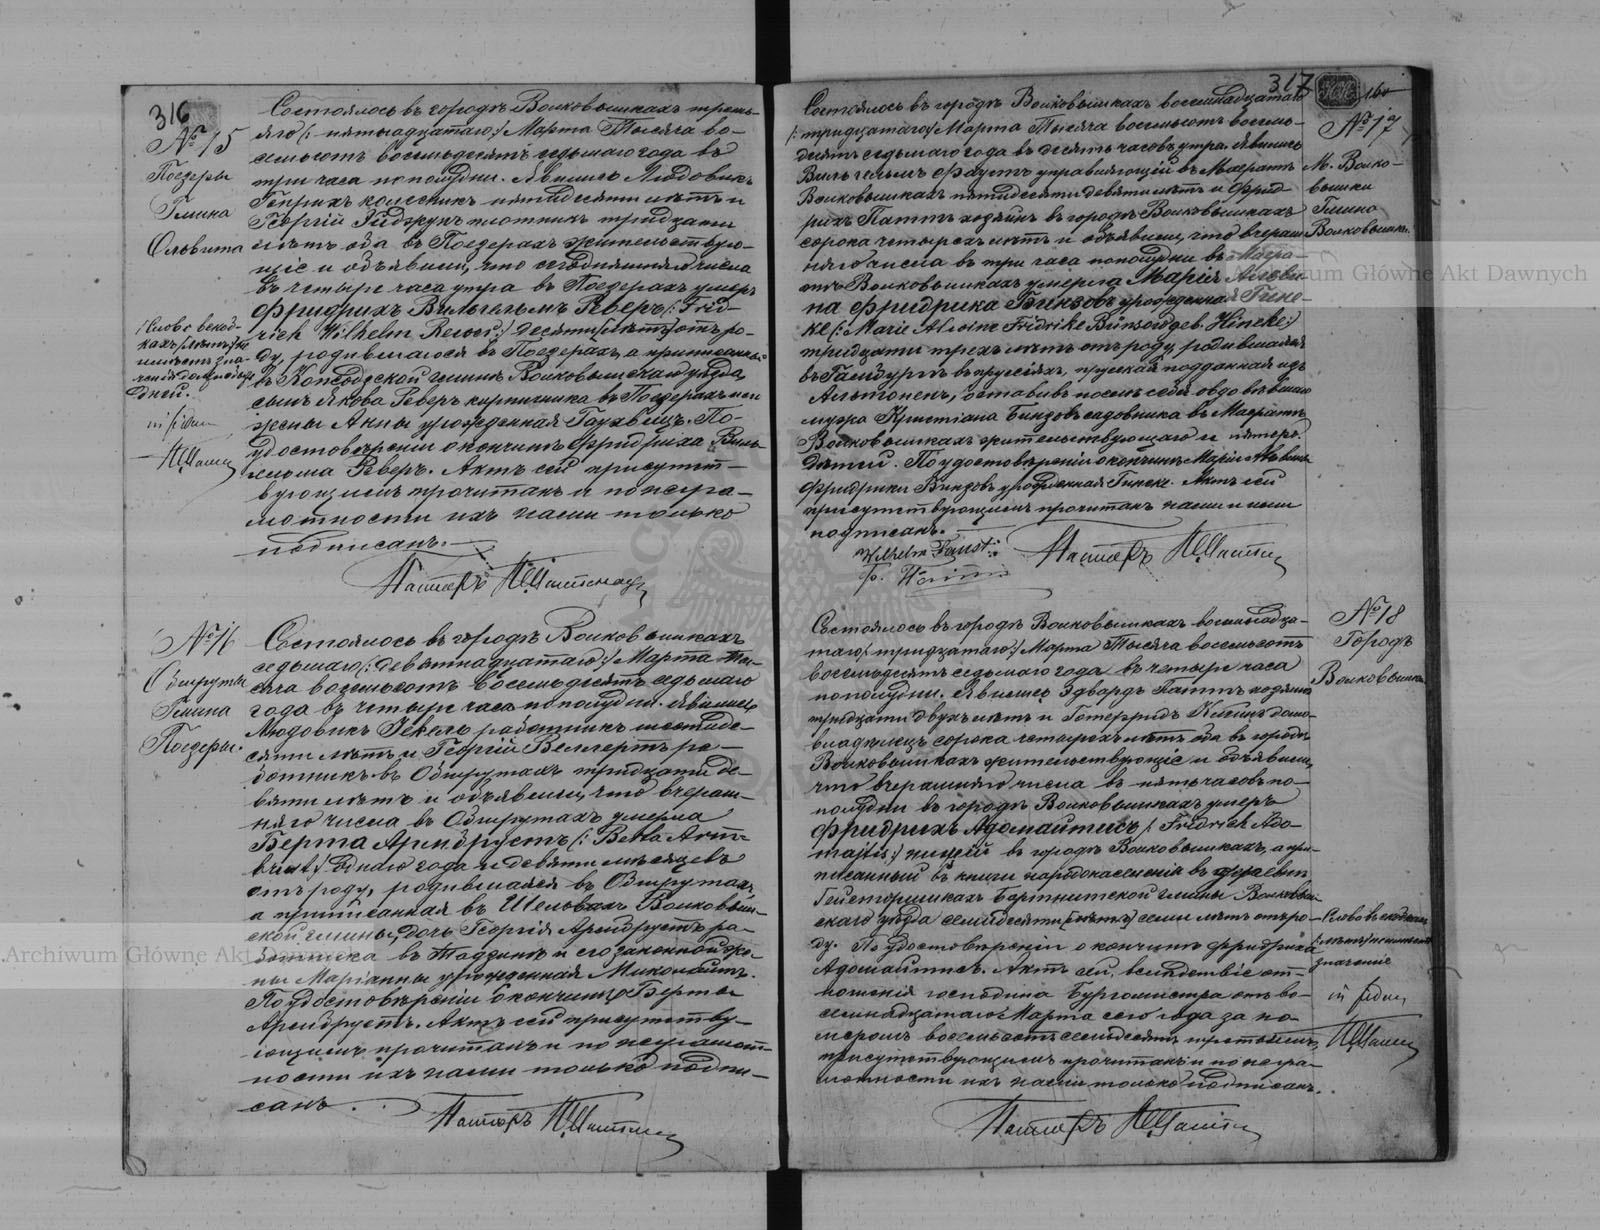 316
№ 15
Поедеры
Гмина
Ольвита
Состоялось въ городѣ Волковышкахъ треть-
яго (: пятнадцатаго:) Марта Тысяча во-
семьсотъ восемьдесятъ седьмаго года въ
три часа по полудни. Явились Людовикъ
Генрихъ колесникъ пятидесяти лѣтъ и
Георгій плотникъ тридцати
лѣтъ оба въ Поедерахъ жительствую-
щіе и объявили, что сегодняшняго числа
въ четыре часа утра въ Поедерахъ умеръ
Фридрихъ Вильгельмъ Реверъ (: Frid-
rich Wilhelm Rewer:) десяти [лѣтъ] отъ ро-
ду, родившагося въ Поедерахъ, а приписанный
въ Копсодзской гминѣ Волковышскаго уѣзда,
сынъ Якова Реверъ кирпичника въ Поедерахъ и его
жены Анны урожденная. По
удостовѣреніи о кончинѣ Фридриха Виль-
гельма Реверъ. Актъ сей присутст-
вующимъ прочитанъ и по негра-
мотности ихъ нами только
подписанъ.
Пасторъ
(Слово въ скоб-
кахъ (лѣтъ) не
имѣетъ зна-
ченія
дней.
in fidem
№ 16
Обшруты
Гмина
Поедеры.
Состоялось въ городѣ Волковышкахъ
седьмаго (: девятнадцатаго:) Марта Ты-
сяча восемьсотъ восемьдесятъ седьмаго
года въ четыре часа по полудни. Явились
Людовикъ Гекель работникъ шестиде-
сяти лѣтъ и Георгій Веллертъ ра-
ботникъ въ Обшрутахъ тридцати де-
вяти лѣтъ и объявили, что вчераш-
няго числа въ Обшрутахъ умерла
Берта Армбрустъ (: Berta Arm-
brust:) Однаго года и девяти мѣсяцевъ
отъ роду, родившаяся въ Обшрутахъ,
а приписанная въ Шельвахъ Волковыш-
ской гмины, дочь Георгія Армбрустъ ра-
ботника въ и его законной же-
ны Маріанны урожденная Миколайтъ.
По удостовѣреніи о кончинѣ Берты
Армбрустъ. Актъ сей присутству-
ющимъ прочитанъ и по неграмот-
ности ихъ нами только подпи-
санъ.
Пасторъ
317
160
№ 17
М. Волко-
вышки
Гмина
Волковышки
Состоялось въ городѣ Волковышкахъ восемнадцатаго
(: тридцатаго:) Марта Тысяча восемьсотъ восемь-
десятъ седьмаго года въ десять часовъ утра. Явились
Вильгельмъ Фаустъ управляющій въ Маератѣ
Волковышкахъ пятидесяти девяти лѣтъ и Фрид-
рихъ Паттъ хозяинъ въ городѣ Волковышкахъ
сорока четырехъ лѣтъ и объявили, что вчераш-
няго числа въ три часа по полудни въ Маера-
тѣ Волковышкахъ умерла Марія Альви-
на Фридрика Бинзовъ урожденная Гине-
ке (: Marie Alwine Fridrike Binsow geb. Hineke:)
тридцати трехъ лѣтъ отъ роду, родившаяся
въ Гамбургѣ въ Пруссіяхъ, прусская подданная изъ
, оставивъ послѣ себя овдовѣвшаго
мужа Христіана Бинзовъ садовника въ Маератѣ
Волковышкахъ жительствующаго и пятеро
дѣтей. По удостовѣреніи о кончинѣ Маріи Альвины
Фридрики Бинзовъ урожденная Гинеке. Актъ сей
присутствующимъ прочитанъ нами и ими
подписанъ.
Wilhelm Faust
Пасторъ
№ 18
Городъ
Волковышки
Состоялось въ городѣ Волковышкахъ восемнадца-
таго (: тридцатаго:) Марта Тысяча восемьсотъ
восемьдесятъ седьмаго года въ четыре часа
по полудни. Явились Эдвардъ Паттъ хозяинъ
тридцати двухъ лѣтъ и Готфридъ домо-
владѣлецъ сорока четырехъ лѣтъ оба въ городѣ
Волковышкахъ жительствующіе и объявили,
что вчерашняго числа въ пять часовъ по
полудни въ городѣ Волковышкахъ умеръ
Фридрихъ Адомайтисъ (: Fridrich Ado-
majtis:) нищій въ городѣ Волковышкахъ, а при-
писанный въ книги народонаселенія въ
Бартнитской гмины Волковыш-
скаго уѣзда семидесяти [лѣтъ] семи лѣтъ отъ ро-
ду. По удостовѣреніи о кончинѣ Фридриха
Адомайтисъ. Актъ сей, вслѣдствіе от-
ношенія господина Бургомистра отъ во-
семнадцатаго Марта сего года за но-
меромъ восемьсотъ семьдесятъ третьимъ,
присутствующимъ прочитанъ и по негра-
мотности ихъ нами только подписанъ.
Пасторъ
Слово въ скобкахъ
(лѣтъ) не имѣетъ
значенія
in fidem
Archiwum Główne Akt Dawnych
Archiwum Główne Akt Dawnych